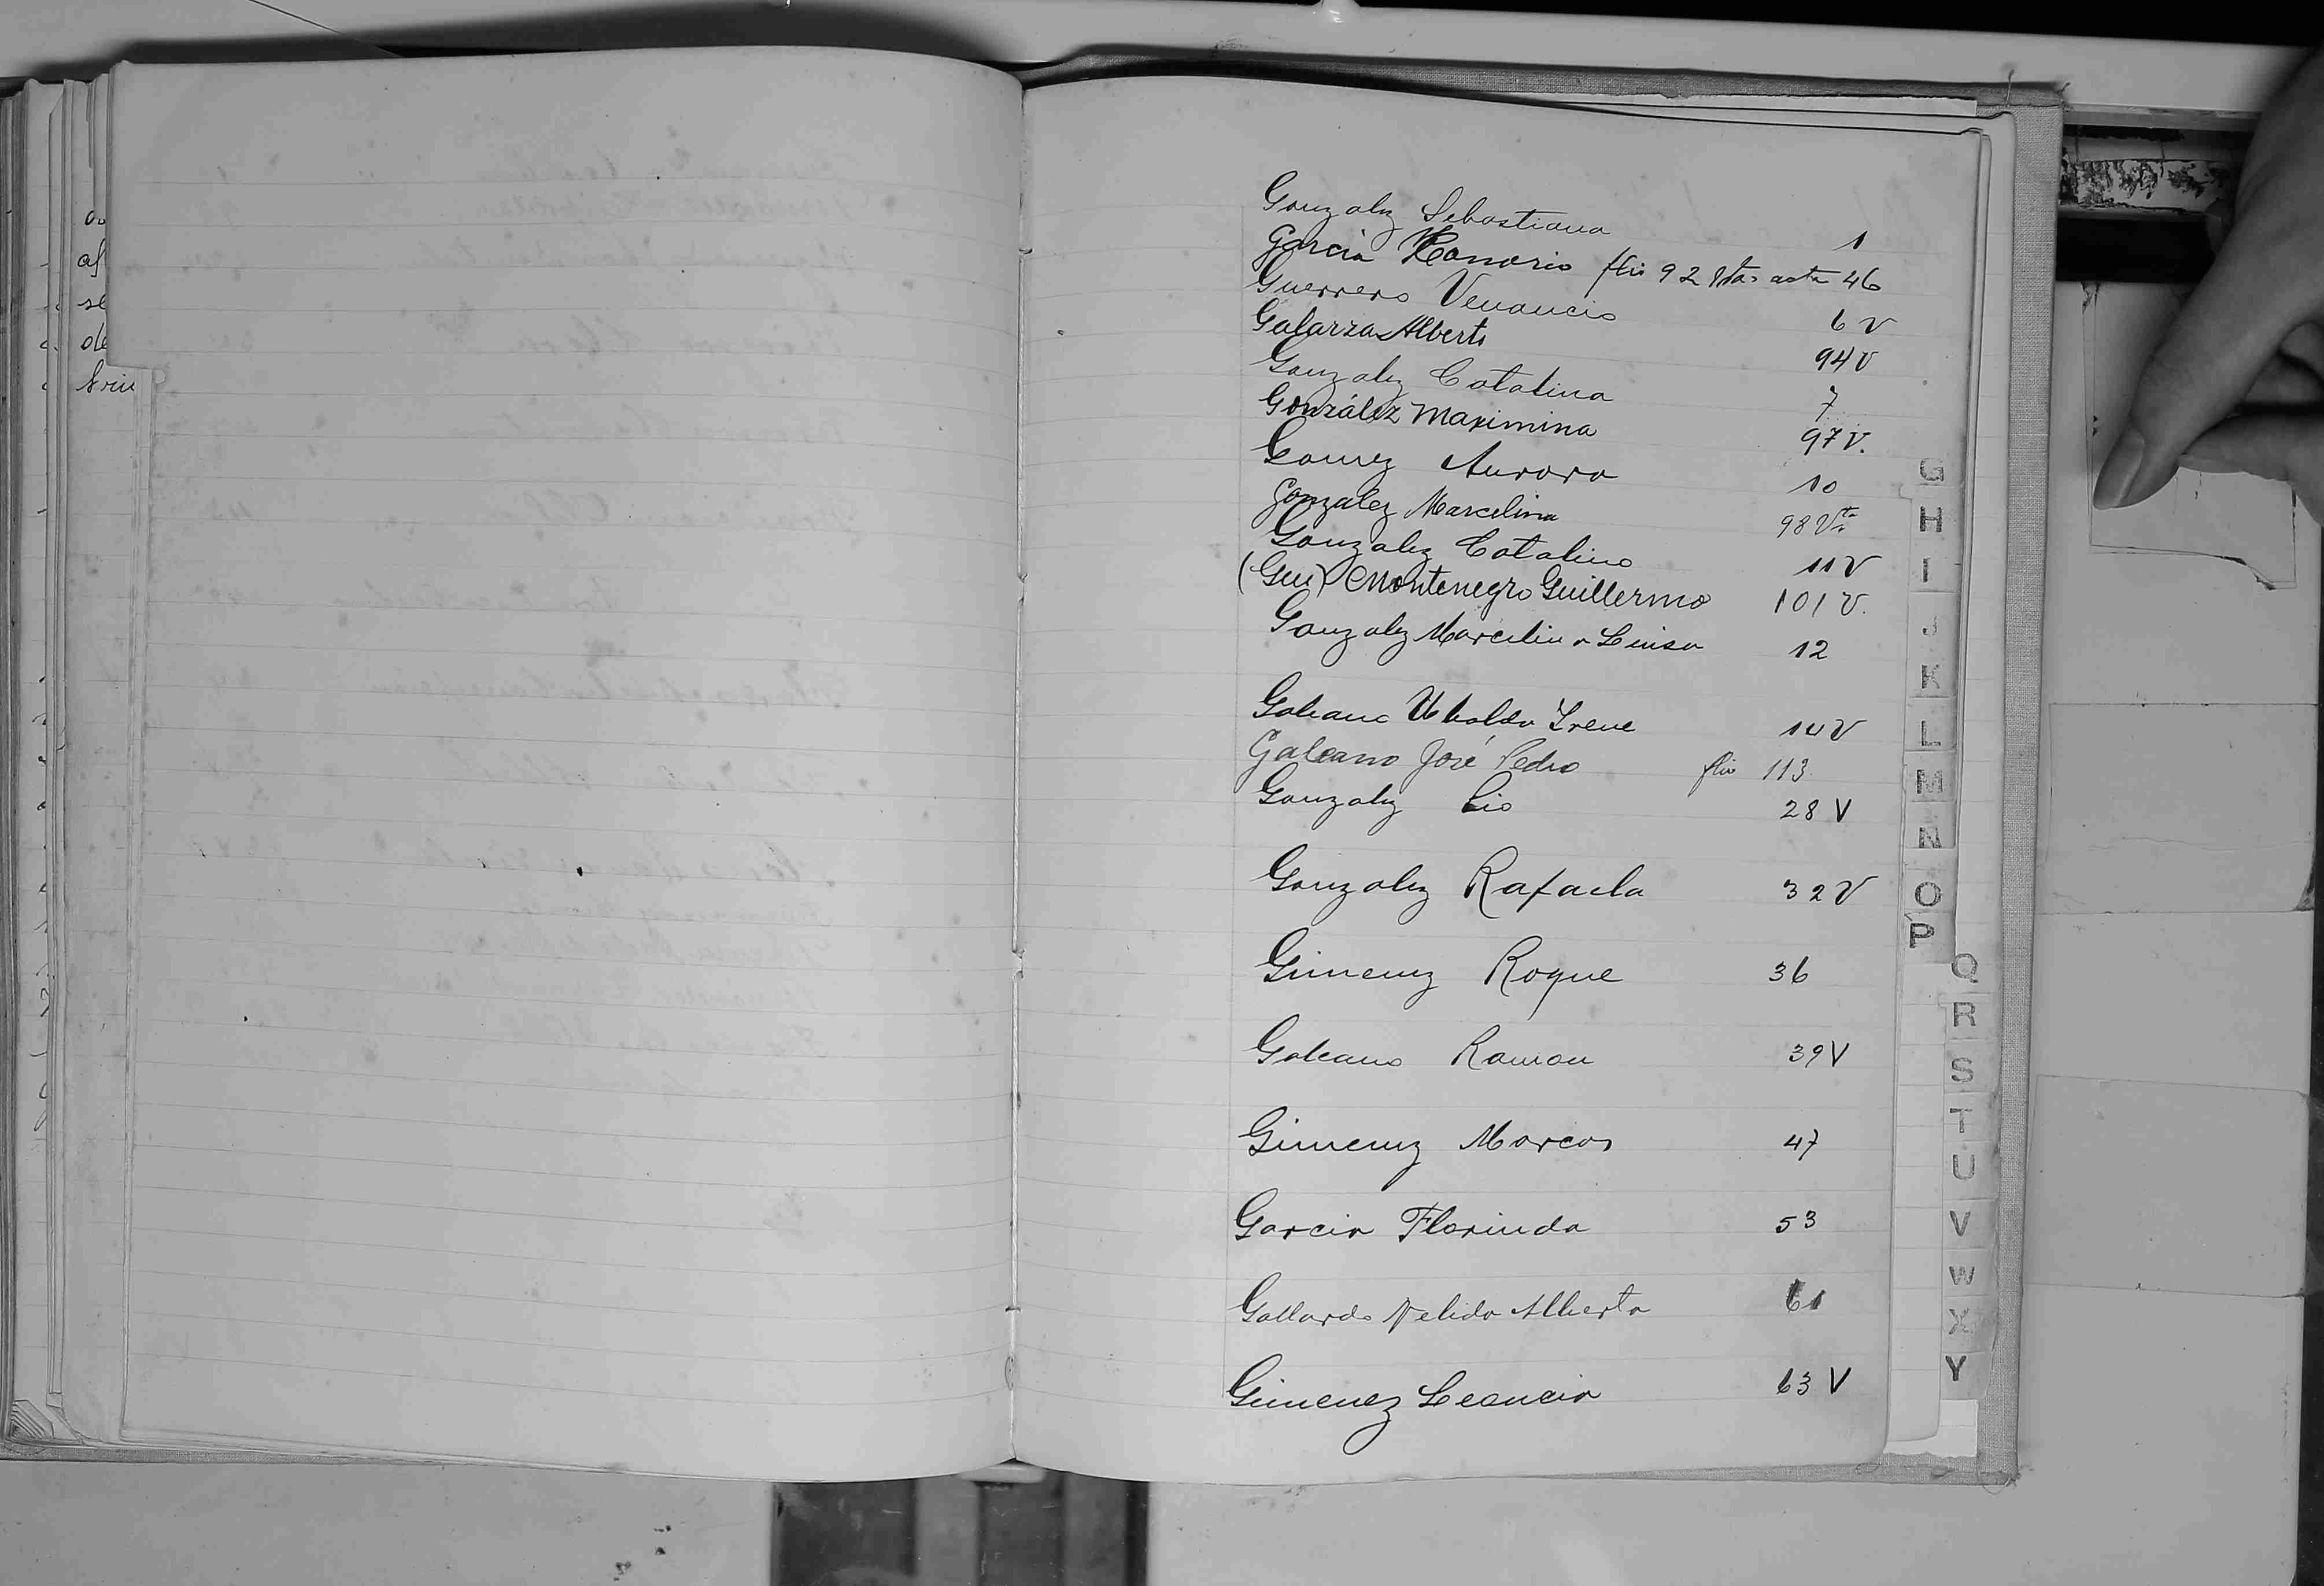 au
af
se
de
Gonzalez Sebastiana 1
Garcia Honorio flio 92 Vta. acta 46
Guerrero Venancio 6 V
Galarza Alberto 94 V
Gonzalez Catalina 7
González Maximina 97 V.
Gomez Aurora 10
Gonzalez Marcelina 98 Vta
Gonzalez Catalino 11 V
(Gui) Montenegro Guillermo 101 V.
Gonzalez Marcelina Luisa 12
Galeano Ubalda Irene 14 V
Galeano José Pedro flio 113
Gonzalez 28 V
Gonzalez Rafaela 32 V
Gimenez Roque 36
Galeano Ramon 39 V
Gimenez Marcos 47
Garcia Florinda 53
Gallardo Nelida Alberta 61
Gimenez Leoncia 63 V
G
H
I
J
K
L
M
N
O
P
Q
R
S
T
U
V
W
X
Y